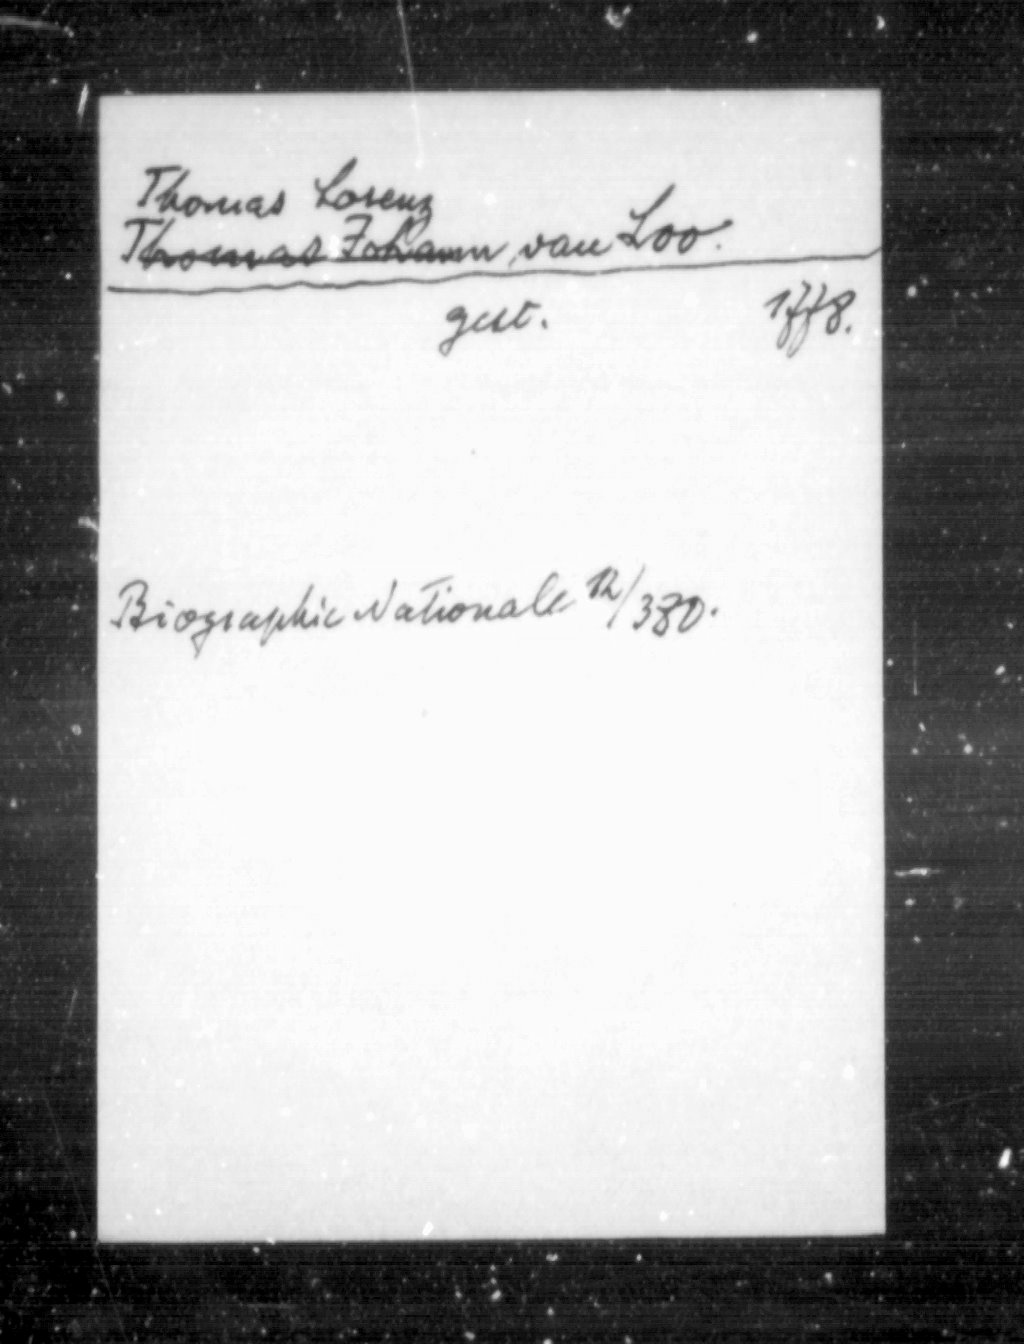 Thomas Lorenz
Thomas Johann van Loo.
gest. 1778.
Biographie Nationale 12/380.